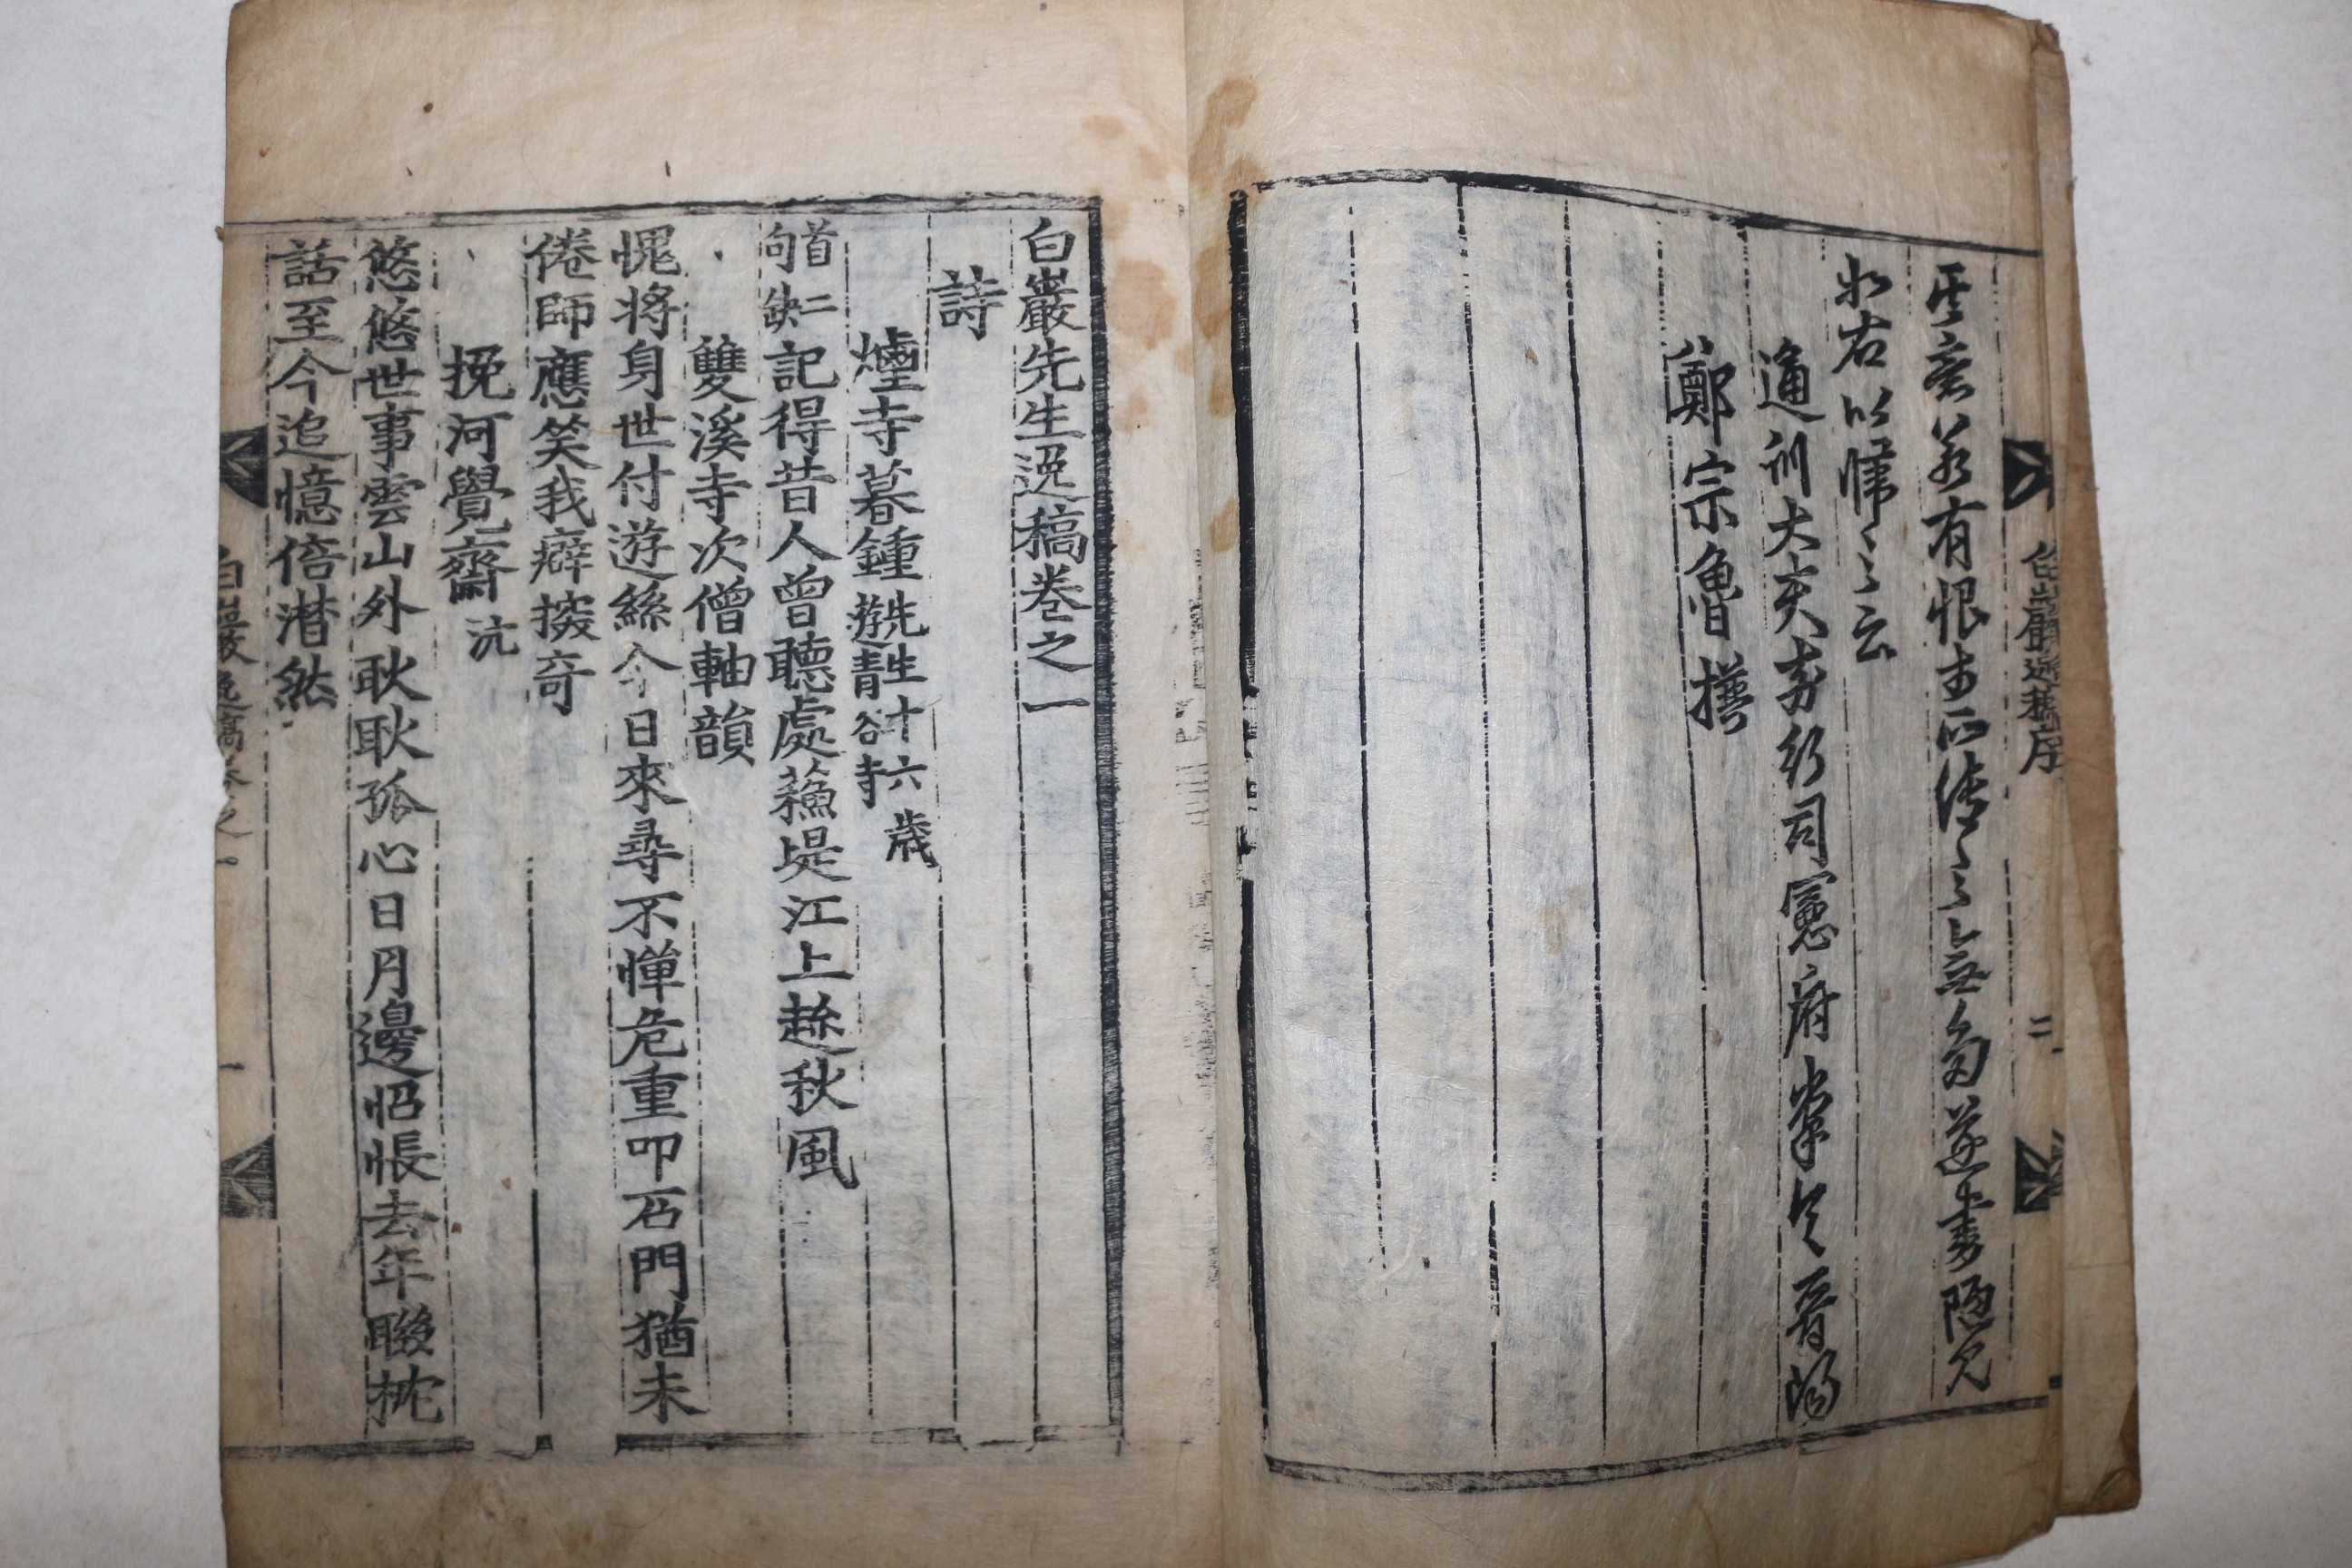 白巖逸稿序 二
有恨
如右以歸之云
通訓大夫行司憲府掌令晉陽
鄭宗魯撰
白巖先生逸稿卷之一
詩
煙寺暮鍾 先生十六歲遊青谷寺
首二句缺記得昔人曾聽處蘓堤江上趂秋風
雙溪寺次僧軸韻
愰將身世付游絲今日來尋不憚危重叩石門猶未
倦師應笑我癖探奇
挽河覺齋 沆
悠悠世事雲山外耿耿孤心日月邊怊悵去年聯枕
話至今追憶倍潸然
白巖逸稿卷之一 一